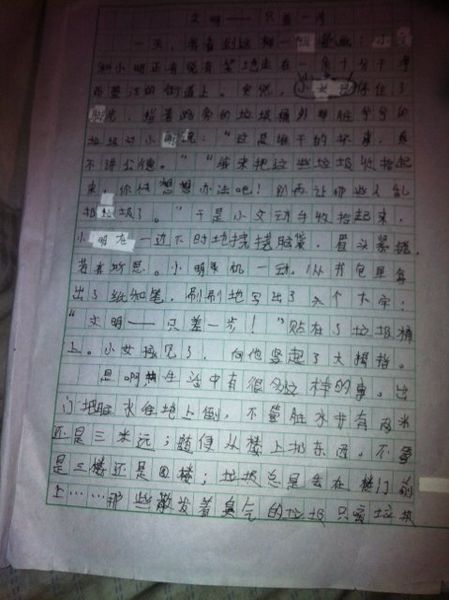 文明——只差一步
一天，我看到这样一幅漫画：小文
和小明正有说有笑地走在一条十分干净
而整洁的街道上。突然，小文停住了
脚步，指着路旁的垃圾桶外那脏兮兮的
垃圾对小明说："这是谁干的坏事，真
不讲公德。""我来把这些垃圾收拾起
来，你快想想办法吧！别再让那些人乱
扔垃圾了。"于是小文动手收拾起来，
小明在一边不时地挠挠脑袋，眉头紧锁，
若有所思。小明灵机一动，从书包里拿
出了纸和笔，刷刷地写出了六个大字：
"文明——只差一步！"贴在了垃圾桶
上。小文看见了，向他竖起了大拇指。
是啊，生活中有很多这样的事。出
门把脏水往地上倒，不管脏水井有两米
还是三米远；随便从楼上扔东西，不管
是三楼还是四楼；垃圾总是会在楼门前
上……那些散发着臭气的垃圾只离垃圾